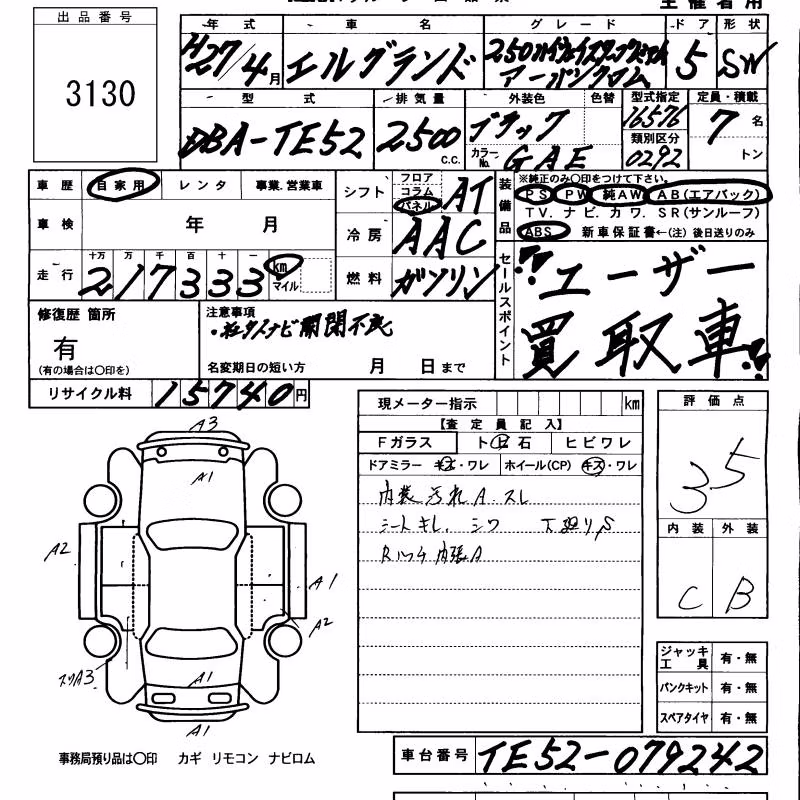 主催者用
出品番号
3130
年式 車名 グレード ドア 形状
H27/4月 エルグランド 250ハイウェイスタープレミアム アーバンクロム 5 SW
型式 排気量 外装色 色替 型式指定 定員・積載
DBA-TE52 2500 c.c. ブラック 16576 7名
カラーNo. GAE 類別区分 0292 トン
車歴 自家用 レンタ 事業.営業車
車検 年 月
走行 十万 万 千 百 十 一
217333 km マイル
シフト フロア コラム パネル AT
冷房 AAC
燃料 ガソリン
装備品
※純正のみ○印をつけて下さい。
PS PW 純AW AB(エアバック)
TV. ナビ. カワ. SR(サンルーフ)
ABS 新車保証書←(注) 後日送りのみ
セールスポイント
ユーザー
買取車!!
修復歴 箇所
有
(有の場合は○印を)
注意事項
開閉不良
名変期日の短い方 月 日まで
リサイクル料 15740円
現メーター指示 km
【査定員記入】
Fガラス トビ石 ヒビワレ
ドアミラー キズ・ワレ ホイール(CP) キズ・ワレ
内装汚れ A スレ
シートキレ. シワ 下廻りS
Rハッチ内張A
評価点
3.5
内装 外装
C B
ジャッキ工具 有・無
パンクキット 有・無
スペアタイヤ 有・無
A3
A1
A2
A1
A2
スリA3
A1
A1
事務局預り品は○印 カギ リモコン ナビロム
車台番号 TE52-079242